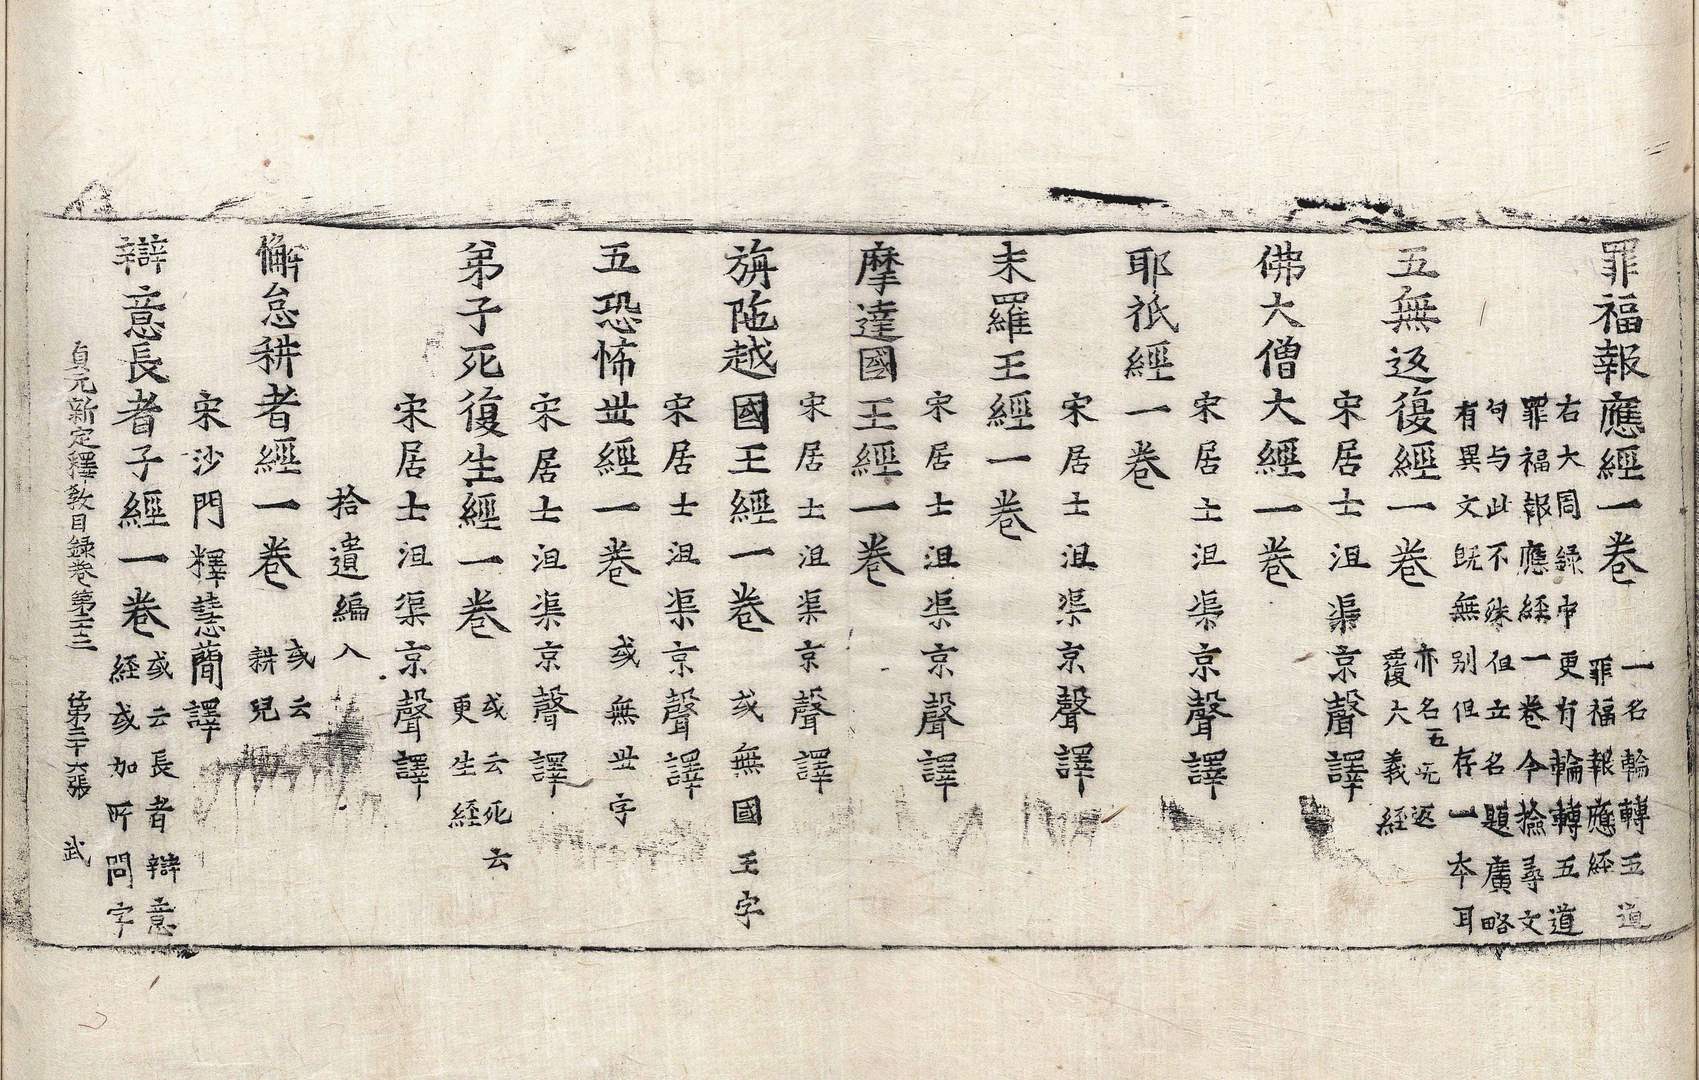 罪福報應經一卷
一名輪轉五道
罪福報應經
右大同録中更有輪轉五道
罪福報應經一卷今撿尋文
句与此不殊但立名題廣略
有異文既無別但存一本耳
五無返復經一卷
亦名五无返
覆大義經
宋居士沮渠京聲譯
佛大僧大經一卷
宋居士沮渠京聲譯
耶祇經一卷
宋居士沮渠京聲譯
末羅王經一卷
宋居士沮渠京聲譯
摩達國王經一卷
宋居士沮渠京聲譯
旃陁越國王經一卷
或無國王字
宋居士沮渠京聲譯
五恐怖丗經一卷
或無丗字
宋居士沮渠京聲譯
弟子死復生經一卷
或云死云
更生經
宋居士沮渠京聲譯
拾遺編入
懈怠耕者經一卷
或云
耕兒
宋沙門釋慧蕳譯
辯意長者子經一卷
或云長者辯意
経或加所問字
貞元新定釋教目録卷第三十三 第三十六張 武